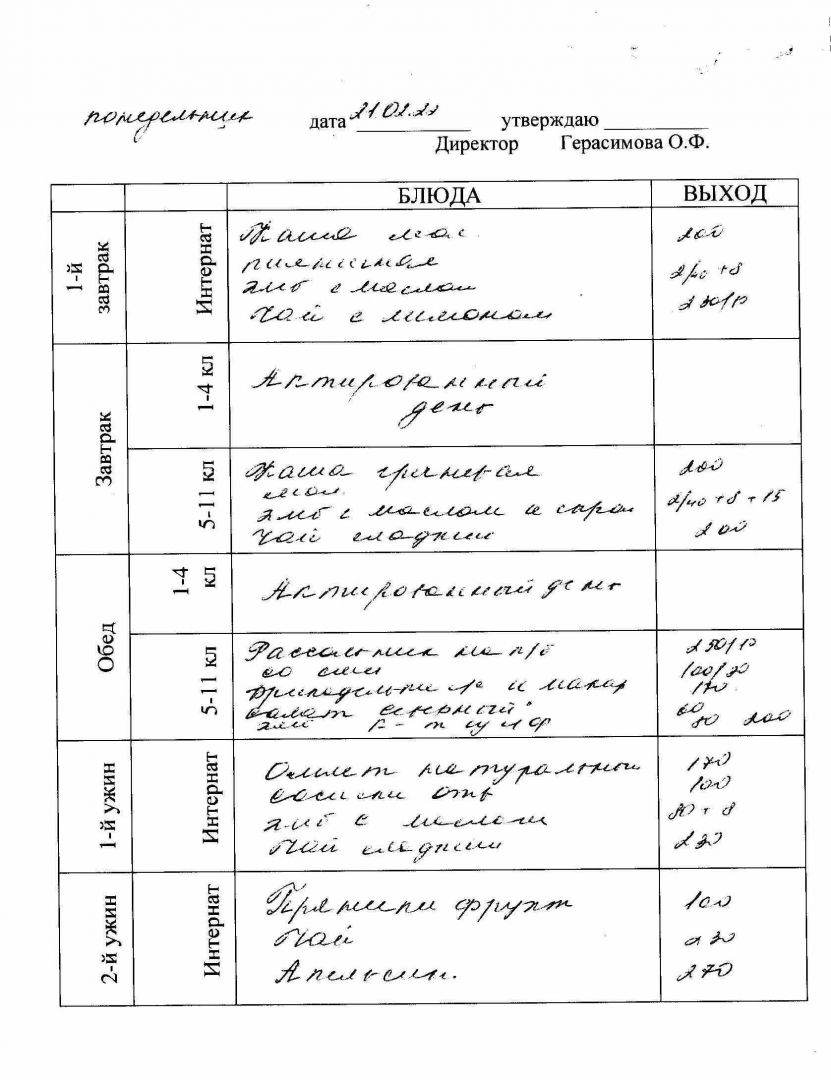 понедельник дата 21.02.22 утверждаю
Директор Герасимова О.Ф.
БЛЮДА ВЫХОД
1-й завтрак Интернат
Каша мол. 200
пшенная
хлеб с маслом 2/40 +8
Чай с лимоном 230/10
Завтрак 1-4 кл
Актированный
день
5-11 кл
Каша гречневая 200
мол.
хлеб с маслом и сыром 2/40 +8 +15
Чай сладкий 200
Обед 1-4 кл
Актированный день
5-11 кл
Рассольник на к/б 250/10
со 100/30
фрикадельки и макар 170
салат 60
хлеб к-т 50 200
1-й ужин Интернат
Омлет натуральный 170
сосиски отв 100
хлеб с маслом 80 + 8
Чай сладкий 230
2-й ужин Интернат
Пряники фрукт 100
Чай 230
Апельсин. 270